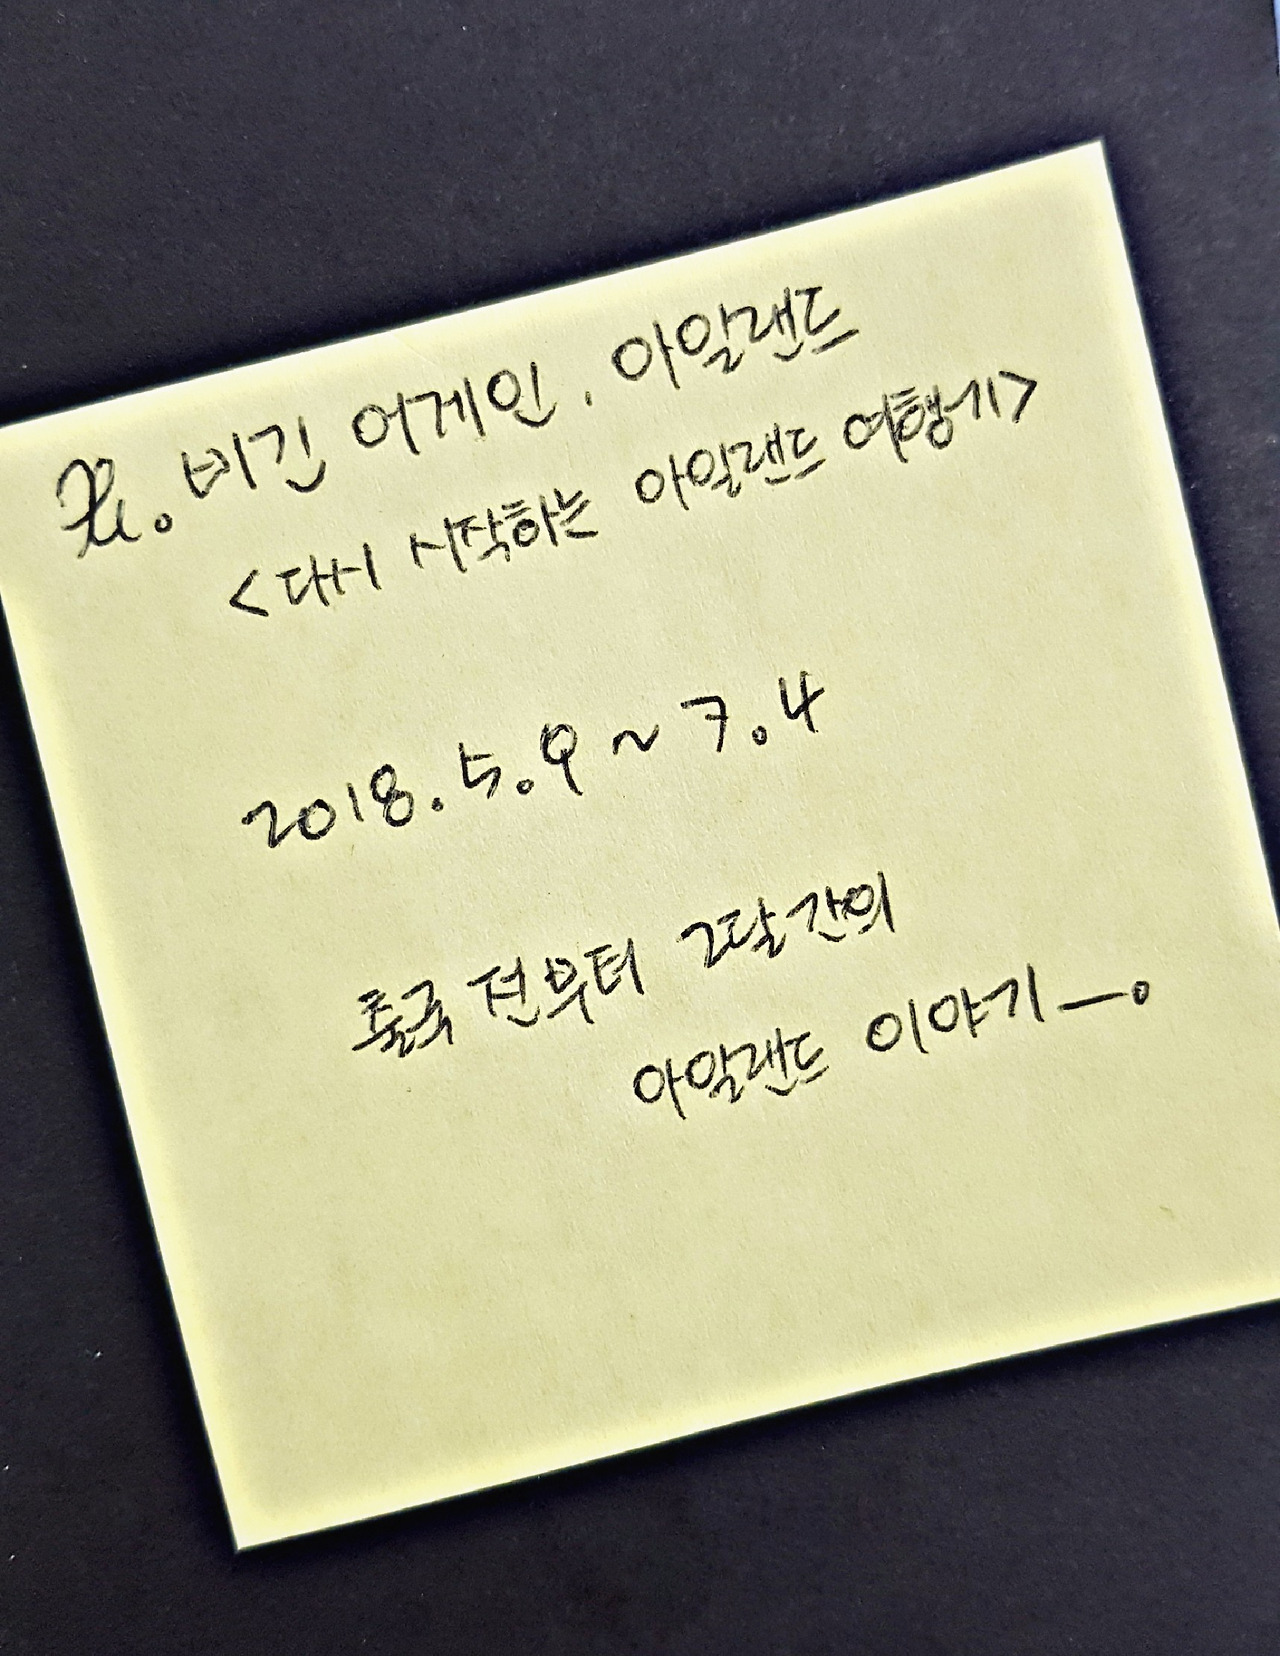 비긴 어게인. 아일랜드
<다시 시작하는 아일랜드 여행기>
2018.5.9 ~ 7.4
출국 전부터 2달간의
아일랜드 이야기 —。